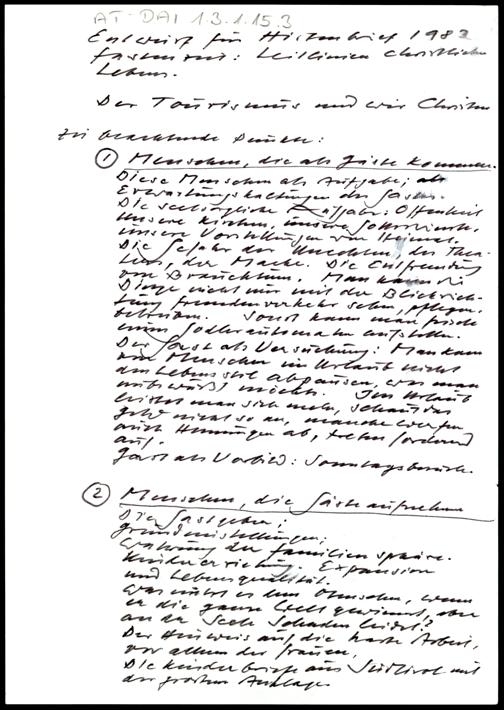 AT-DAI 1.3.1.15.3
Entwurf für Hirtenbrief 1983
Fastenzeit: Leitlinien christlichen
Lebens.
Der Tourismus und wir Christen
Zu beachtende Punkte:
① Menschen, die als Gäste kommen.
Diese Menschen als Aufgabe; als
Erwartungshaltungen des Gastes.
Die seelsorgliche Aufgabe: Offenheit
unsere Kirchen, unsere Gottesdienste,
unsere Vorstellungen von Heimat.
Die Gefahr der Unechtheit, des Thea-
ters, der Mache. Die Entfremdung
von Brauchtum. Man kann die
Dinge nicht nur mit der Blickrich-
tung Fremdenverkehr sehen, pflegen,
betreiben. Sonst kann man gleich
einen Jodlerautomaten aufstellen.
Der Gast als Versuchung: Man kann
von Menschen im Urlaub nicht
den Lebensstil abpausen, wenn man
Im Urlaub
leistet man sich mehr, schaut das
Geld nicht so an, manche werfen
auch Hemmungen ab, treten fordernd
auf.
Gast als Vorbild: Sonntagsbesuch.
② Menschen, die Gäste aufnehmen
Die Gastgeber;
Grundeinstellungen;
Wahrung der Familiensphäre.
Kindererziehung. Expansion
und Lebensqualität.
Was nützt es dem Menschen, wenn
er die ganze Welt gewinnt, aber
an der Seele Schaden leidet?
Der Hinweis auf die harte Arbeit,
vor allem der Frauen.
Die Kinderbriefe aus Südtirol mit
der großen Anklage.